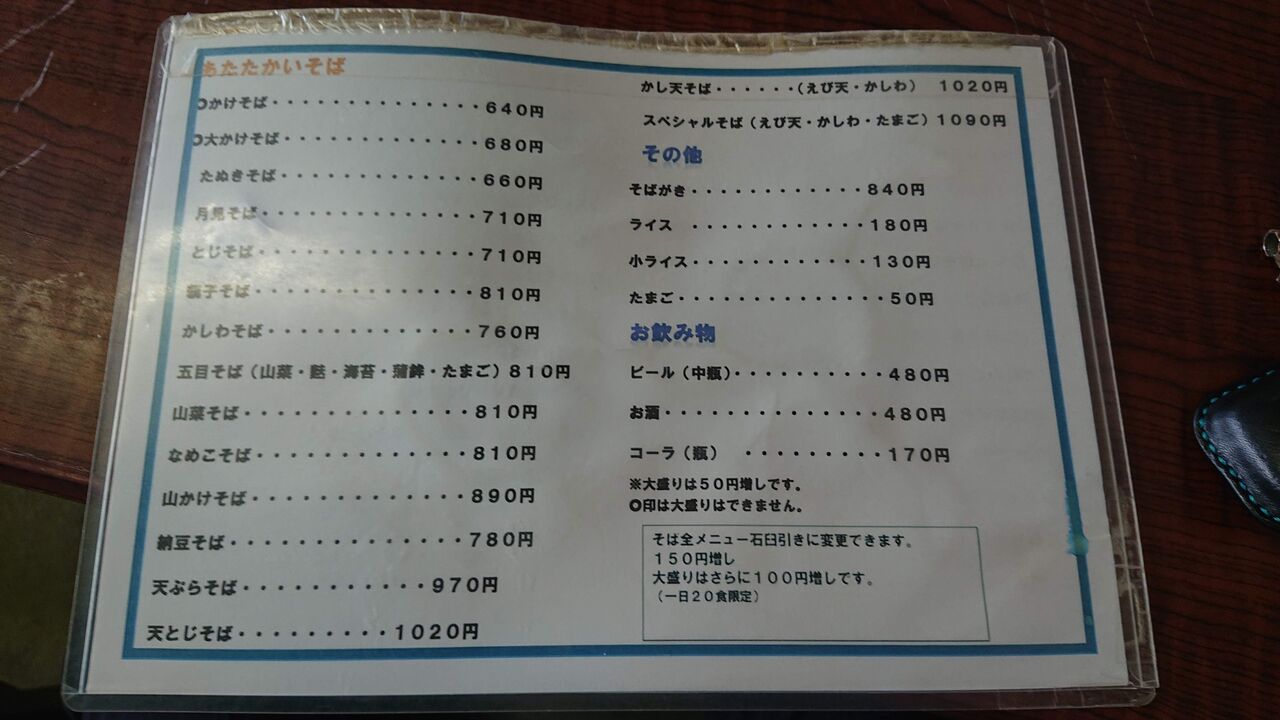 あたたかいそば
〇かけそば・・・・・・・・・・・・・・・640円
〇大かけそば・・・・・・・・・・・・・・680円
たぬきそば・・・・・・・・・・・・・・660円
月見そば・・・・・・・・・・・・・・・710円
とじそば・・・・・・・・・・・・・・・710円
親子そば・・・・・・・・・・・・・・・810円
かしわそば・・・・・・・・・・・・・・760円
五目そば（山菜・麩・海苔・蒲鉾・たまご）810円
山菜そば・・・・・・・・・・・・・・・810円
なめこそば・・・・・・・・・・・・・・810円
山かけそば・・・・・・・・・・・・・・890円
納豆そば・・・・・・・・・・・・・・・780円
天ぷらそば・・・・・・・・・・・・970円
天とじそば・・・・・・・・・・1020円
かし天そば・・・・・・（えび天・かしわ） 1020円
スペシャルそば（えび天・かしわ・たまご）1090円
その他
そばがき・・・・・・・・・・・・840円
ライス ・・・・・・・・・・・・180円
小ライス・・・・・・・・・・・・130円
たまご・・・・・・・・・・・・・・50円
お飲み物
ビール（中瓶）・・・・・・・・・・480円
お酒・・・・・・・・・・・・・・・480円
コーラ（瓶） ・・・・・・・・・170円
※大盛りは50円増しです。
〇印は大盛りはできません。
そば全メニュー石臼引きに変更できます。
150円増し
大盛りはさらに100円増しです。
（一日20食限定）